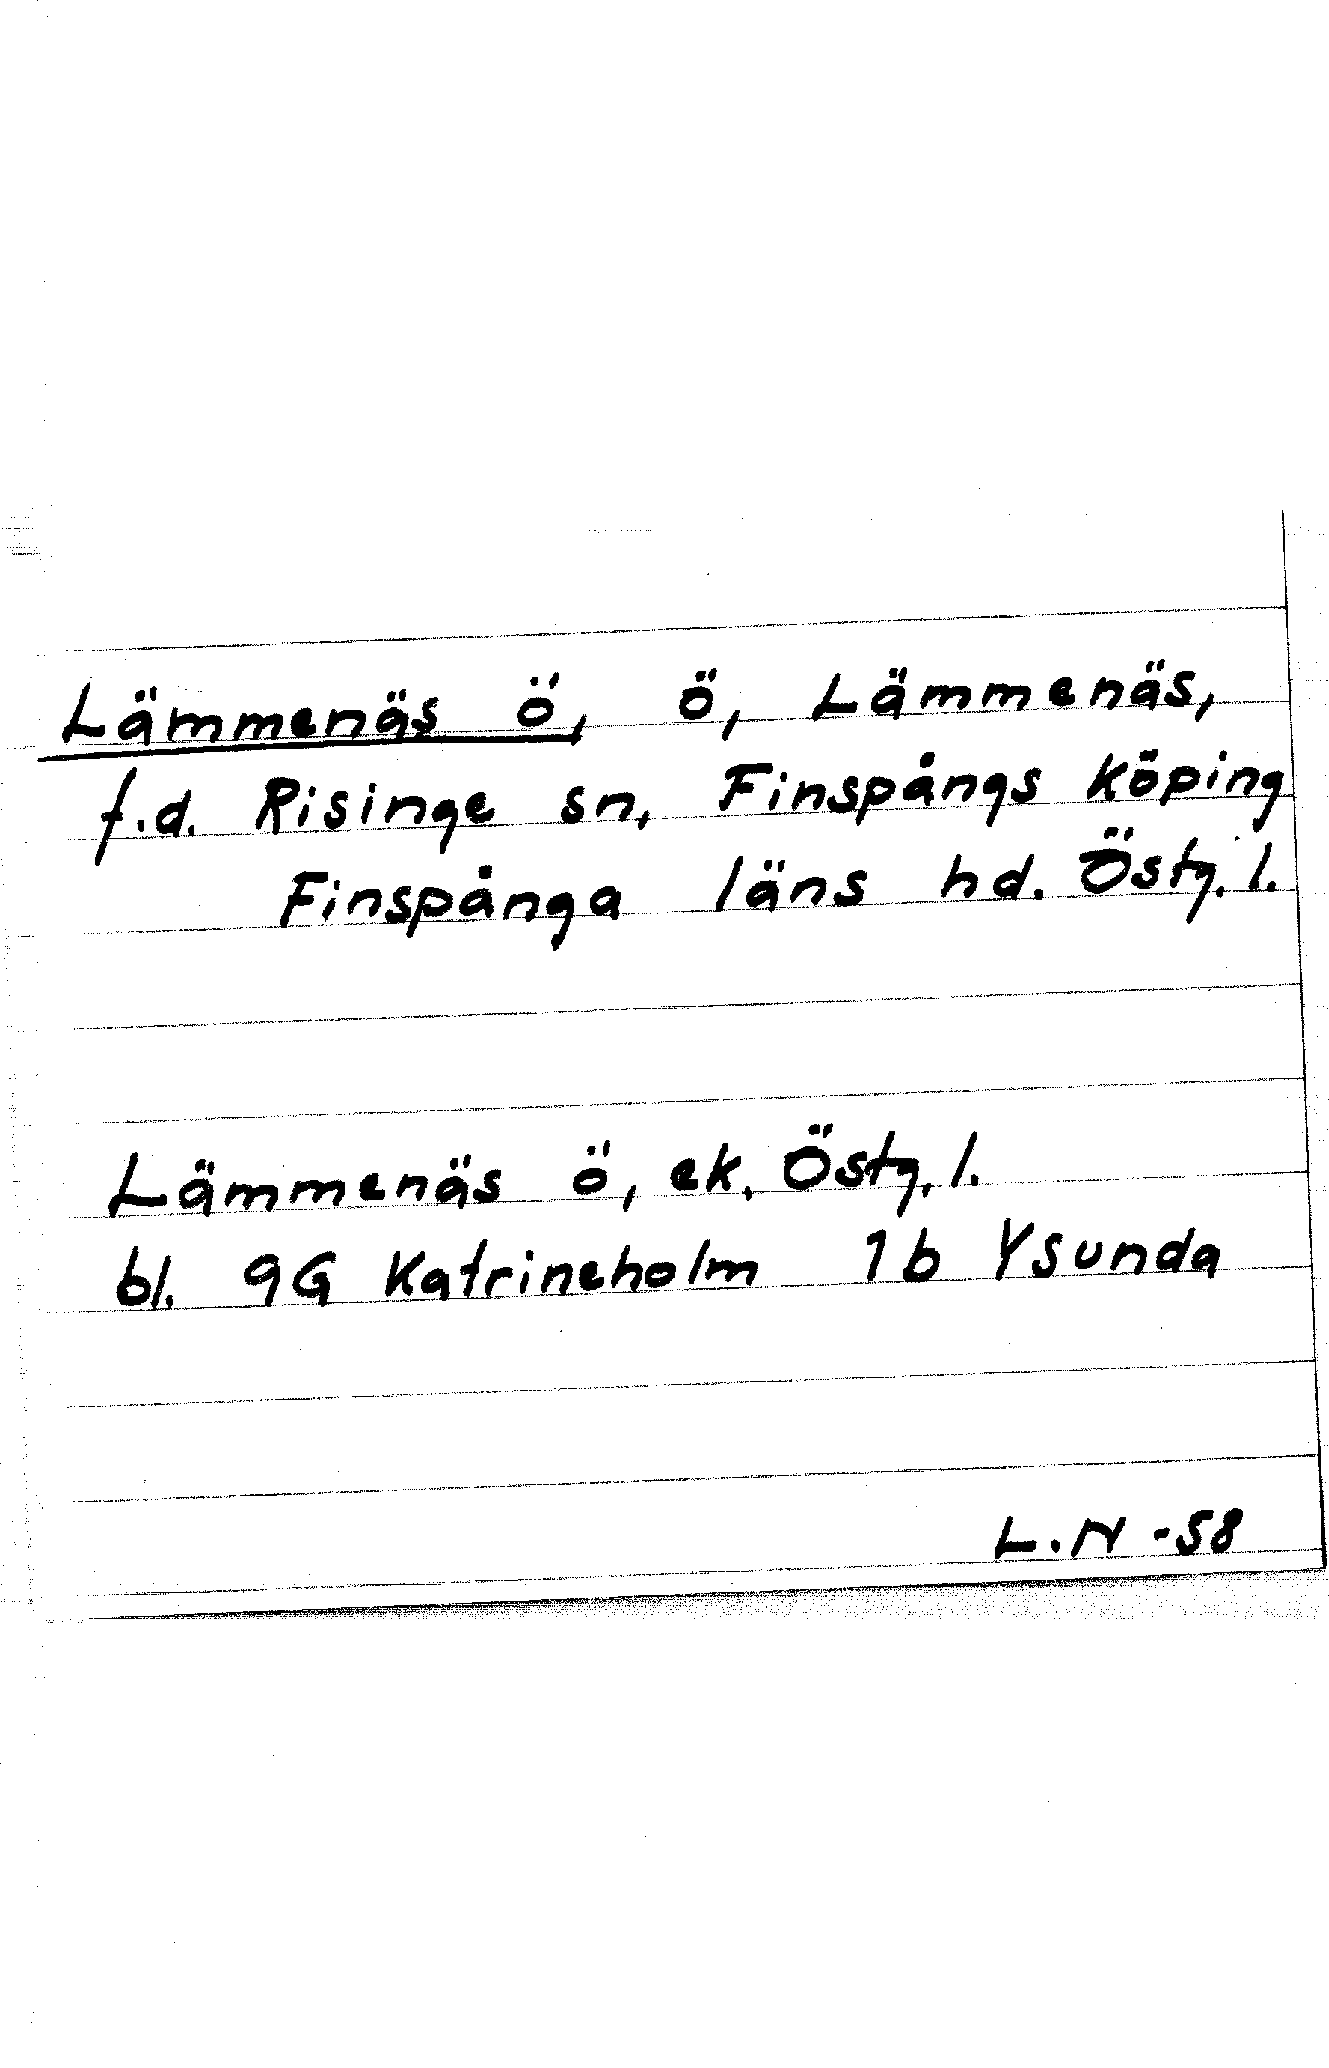 Lämmenäs ö, ö, Lämmenäs,
f.d. Risinge sn, Finspångs köping
Finspånga läns hd. Östg. l.
Lämmenäs ö, ek. Östg. l.
bl. 9G Katrineholm 1b Ysunda
L.N -58